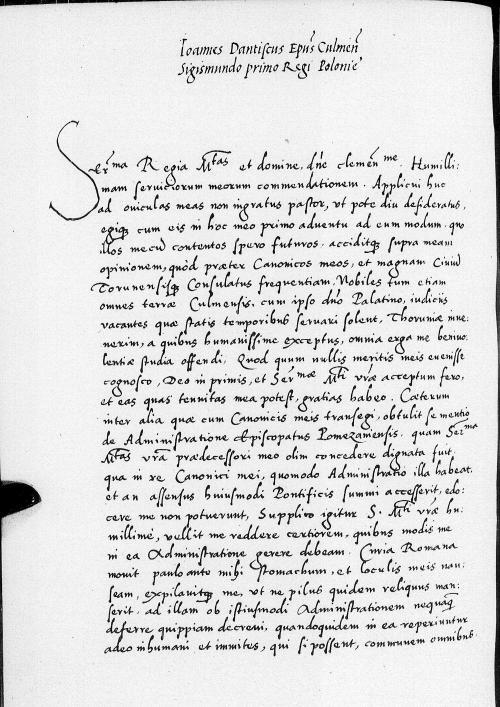 Ioannes Dantiscus Epus Culmen
Sigismundo primo Regi Polonie
Serma Regia Mtas et domine, dne clemen me. Humilli:
mam serviciorum meorum commendationem. Applicui huc
ad oviculas meas non ingratus pastor, ut pote diu desideratus,
egiq cum eis in hoc meo primo adventu ad eum modum. quo
illos mecu contentos spero futuros. acciditq supra meam
opinionem, quòd præter Canonicos meos, et magnam Civiu
Torunensisq Consulatus frequentiam, Nobiles tum etiam
omnes terræ Culmensis, cum ipso dno Palatino, iudiciis
vacantes quæ statis temporibus servari solent, Thoruniæ inve:
nerim, a quibus humanissime exceptus, omnia erga me benivo
lentiæ studia offendi. Quod quum nullis meritis meis evenisse
cognosco, Deo in primis, et Sermæ Mti vræ acceptum fero,
et eas quas tenuitas mea potest, gratias habeo. Cæterum
inter alia quæ cum Canonicis meis transegi, obtulit se mentio
de Administratione Episcopatus Pomezaniensis. quam Serma
Mtas vra prædecessori meo olim concedere dignata fuit,
qua in re Canonici mei, quomodo Administratio illa habeat,
et an assensus huiusmodi Pontificis summi accesserit, edo:
cere me non potuerunt, Supplico igitur S. Mti vræ hu:
millime, vellit me reddere certiorem, quibus modis me
in ea Administratione gerere debeam. Curia Romana
movit paulo ante mihi stomachum, et loculis meis nau:
seam, expilavitq me, ut ne pilus quidem reliquus man:
serit. ad illam ob istiusmodi Administrationem nequaq
deferre quippiam decrevi, quandoquidem in ea reperiuntur
adeo inhumani et immites, qui si possent, communem omnibus